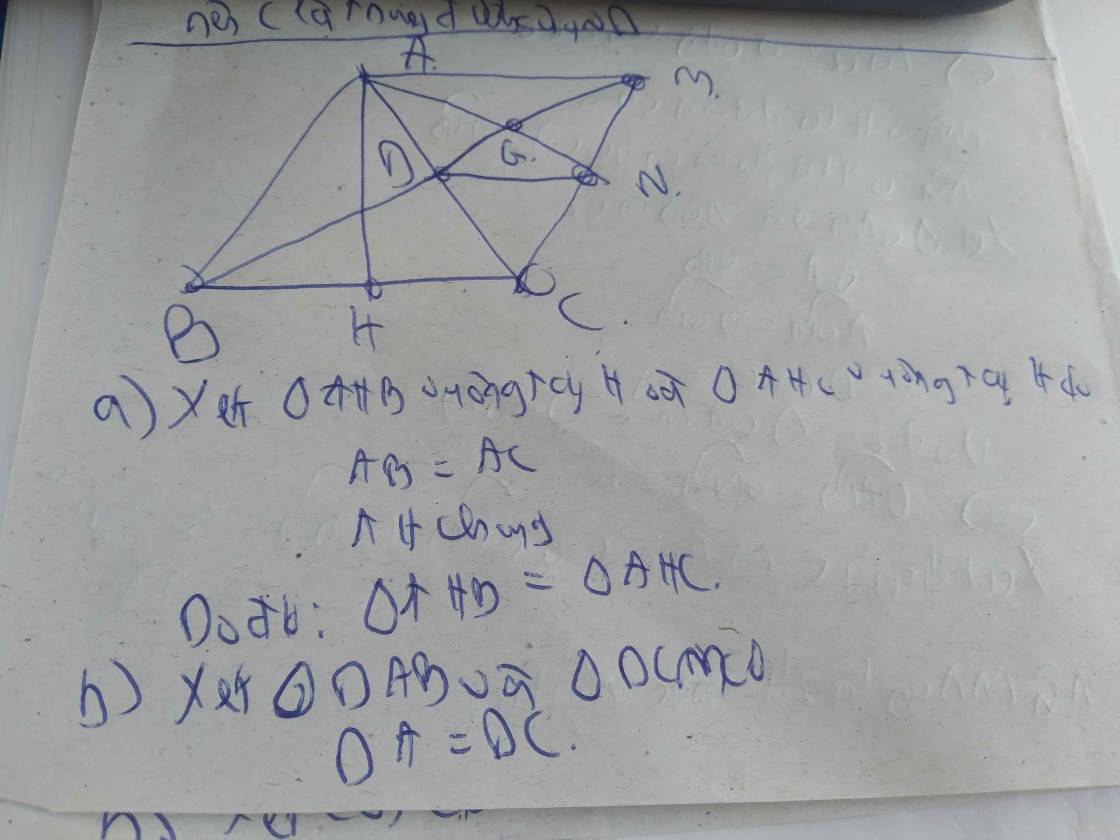 nên C là trung
A.
M.
D
G.
N.
B
H
C.
a) Xét Δ AHB vuông tại H và Δ AHC vuông tại H có
AB = AC
AH chung
Do đó: ΔAHB = ΔAHC.
b) Xét Δ DAB và Δ DCM có
DA = DC.
b) Xét